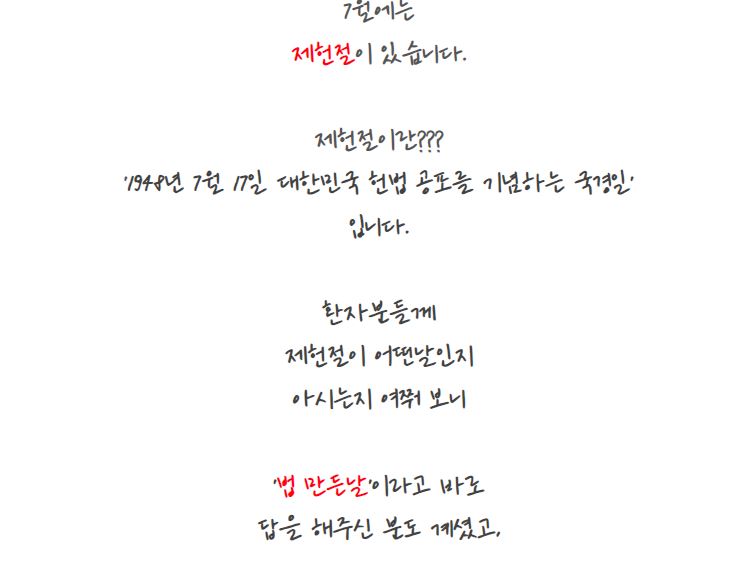 7월에는
제헌절이 있습니다.
제헌절이란???
'1948년 7월 17일 대한민국 헌법 공포를 기념하는 국경일'
입니다.
환자분들께
제헌절이 어떤날인지
아시는지 여쭤 보니
'법 만든날'이라고 바로
답을 해주신 분도 계셨고,